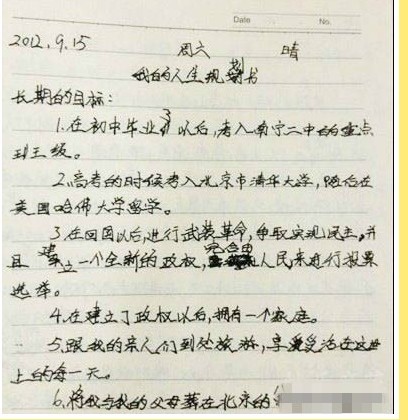 Date No.
2012.9.15 周六 晴
我的人生规划书
长期的目标：
1.在初中毕业了以后，考入南宁二中的重点
班王级。
2.高考的时候考入北京市清华大学，随后在
美国哈佛大学留学。
3.在回国以后，进行武装革命，争取实现民主，并
且建立一个全新的政权，完全由人民来进行投票
选举。
4.在建立了政权以后，拥有一个家庭。
5.跟我的亲人们到处旅游，享受活在这世
上的每一天。
6.将我与我的父母葬在北京的